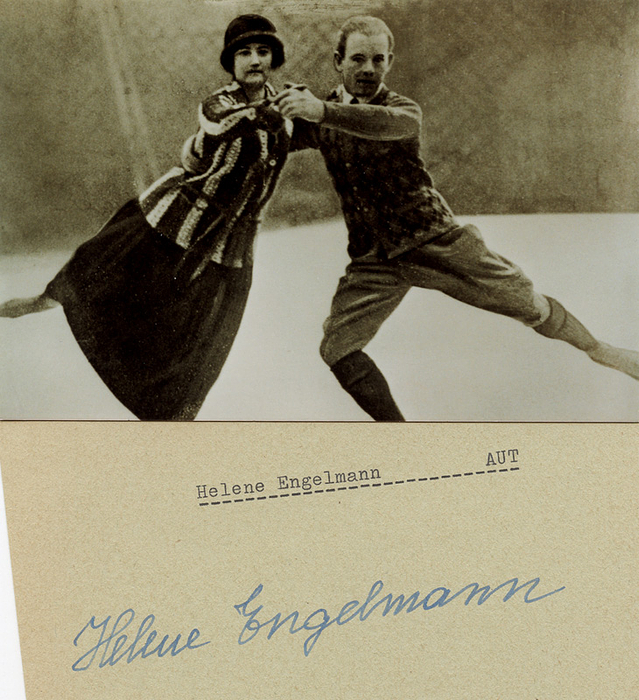 Helene Engelmann AUT
Helene Engelmann